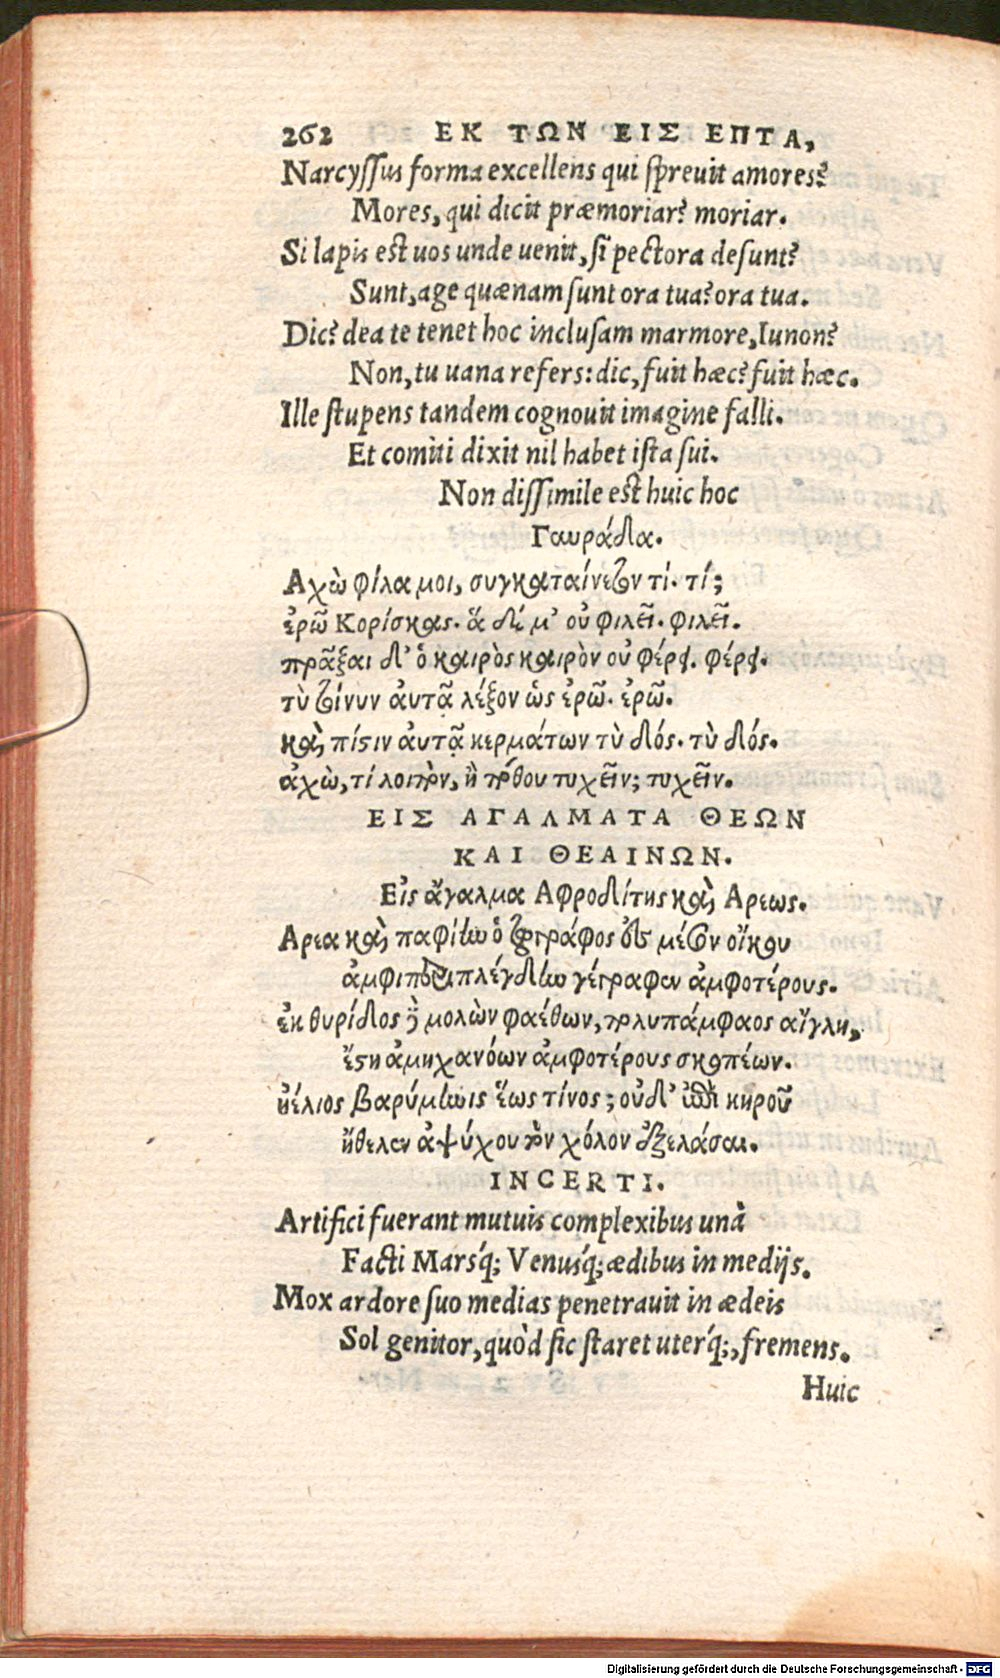 262 ΕΚ ΤΩΝ ΕΙΣ ΕΠΤΑ,
Narcyſſus forma excellens qui ſpreuit amores?
Mores, qui dicit præmoriar? moriar.
Si lapis eſt uos unde uenit, ſi pectora deſunt?
Sunt, age quænam ſunt ora tua? ora tua.
Dic? dea te tenet hoc incluſam marmore, Iunon?
Non, tu uana refers: dic, fuit hæc? fuit hæc.
Ille ſtupens tandem cognouit imagine falli.
Et comiti dixit nil habet iſta ſui.
Non diſſimile eſt huic hoc
Γαυράδα.
Αχὼ φίλα μοι, συγκαταίνεσον τί. τί;
ἐρῶ Κορίσκας. ἃ δέ μ' οὐ φιλεῖ. φιλεῖ.
πρᾶξαι δ' ὁ καιρὸς καιρὸν οὐ φέρει. φέρει.
τὺ τοίνυν ἀυτᾷ λέξον ὡς ἐρῶ. ἐρῶ.
καὶ πίστιν ἀυτᾷ κερμάτων τὺ δός. τὺ δός.
ἀχὼ, τί λοιπὸν, ἢ πόθου τυχεῖν; τυχεῖν.
ΕΙΣ ΑΓΑΛΜΑΤΑ ΘΕΩΝ
ΚΑΙ ΘΕΑΙΝΩΝ.
Εἰς ἄγαλμα Αφροδίτης καὶ Αρεως.
Αρεα καὶ παφίην ὁ ζωγράφος ἐς μέσον οἴκου
ἀμφιπεριπλέγδην γέγραφεν ἀμφοτέρους.
ἐκ θυρίδος δὲ μολὼν φαέθων, πολυπάμφαος αἴγλη,
ἔστη ἀμηχανόων ἀμφοτέρους σκοπέων.
ἠέλιος βαρύμηνις ἕως τίνος; οὐδ' ἐπὶ κηροῦ
ἤθελεν ἀψύχου τὸν χόλον ἐξελάσαι.
INCERTI.
Artifici fuerant mutuis complexibus unà
Facti Marsq́; Venusq́; ædibus in medijs.
Mox ardore ſuo medias penetrauit in ædeis
Sol genitor, quòd ſic ſtaret uterq́;, fremens.
Huic
Digitalisierung gefördert durch die Deutsche Forschungsgemeinschaft - DFG